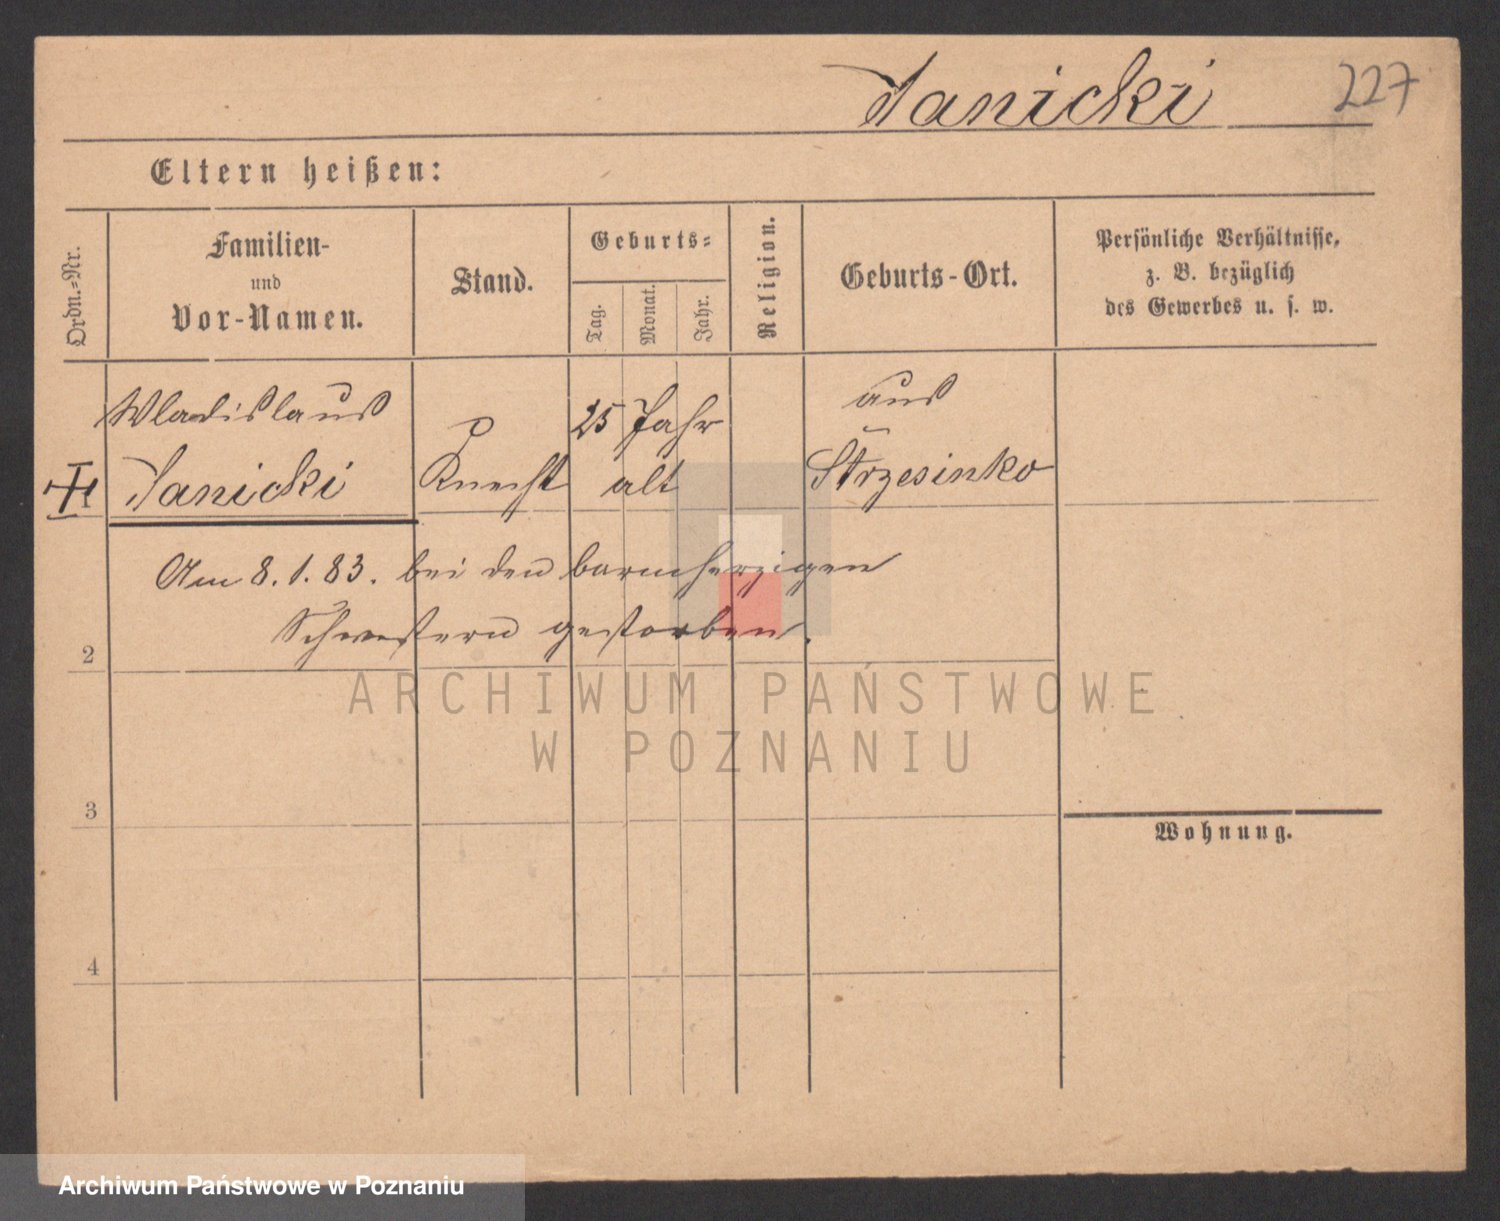 Janicki 227
Eltern heißen:
Ordn.=Nr.
Familien-
und
Vor-Namen.
Stand.
Geburts=
Tag.
Monat.
Jahr.
Religion.
Geburts-Ort.
Persönliche Verhältnisse,
z. B. bezüglich
des Gewerbes u. s. w.
Wladislaus 25 Jahr aus
1 Janicki Knecht alt Strzesinko
Am 8.1.83. bei den barmherzigen
Schwestern gestorben.
2
ARCHIWUM PAŃSTWOWE
W POZNANIU
3
Wohnung.
4
Archiwum Państwowe w Poznaniu